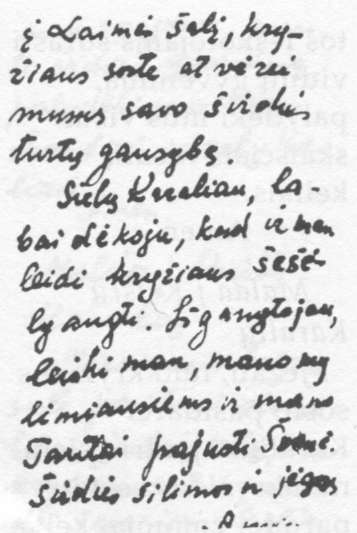 į Laimės šalį, kry-
žiaus sostą atvėręs
mums savo širdies
turtų gausybę
Sielų Karaliau, la-
bai dėkoju, kad ir man
leidi kryžiaus šešė-
ly augti. Lig anglojau,
leiski man, mano my
limiausiems ir mano
Tautai pajusti Švenč.
Širdies šilimos ir jėgos